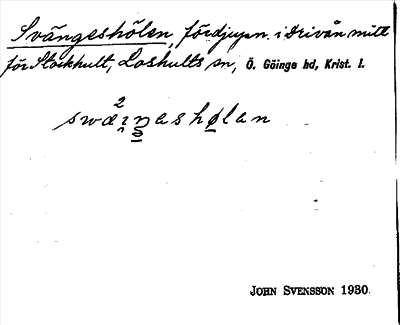 Svängeshölen, fördjupn. i Drivån mitt
för Stockhult, Loshults sn, Ö. Göinge hd, Krist. l.
2
swæiŋashølan
JOHN SVENSSON 1930.